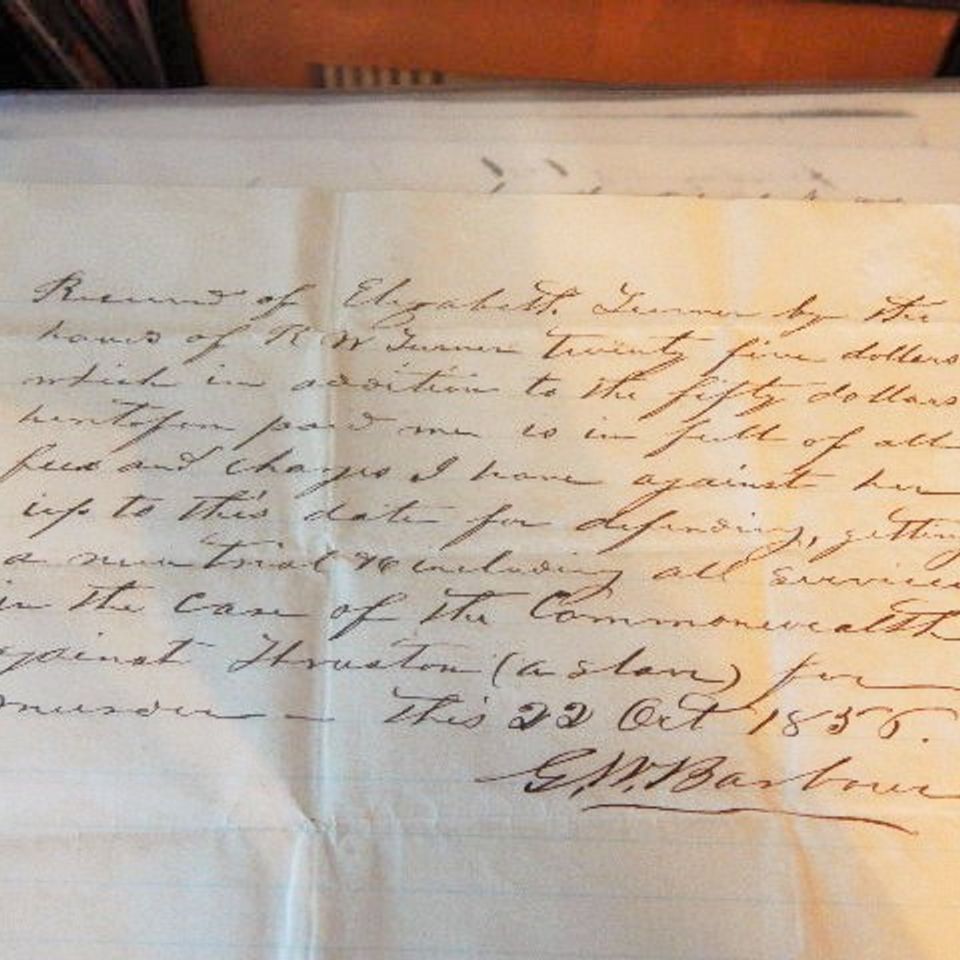 Received of Elizabeth Turner by the
hands of R W Turner twenty five dollars
which in addition to the fifty dollars
heretofore paid me is in full of all
fees and charges I have against her
up to this date for defending, getting
a new trial &c including all services
in the case of the Commonwealth
against Thruston (a slave) for
murder – this 22 Oct 1855.
G. W. Barbour